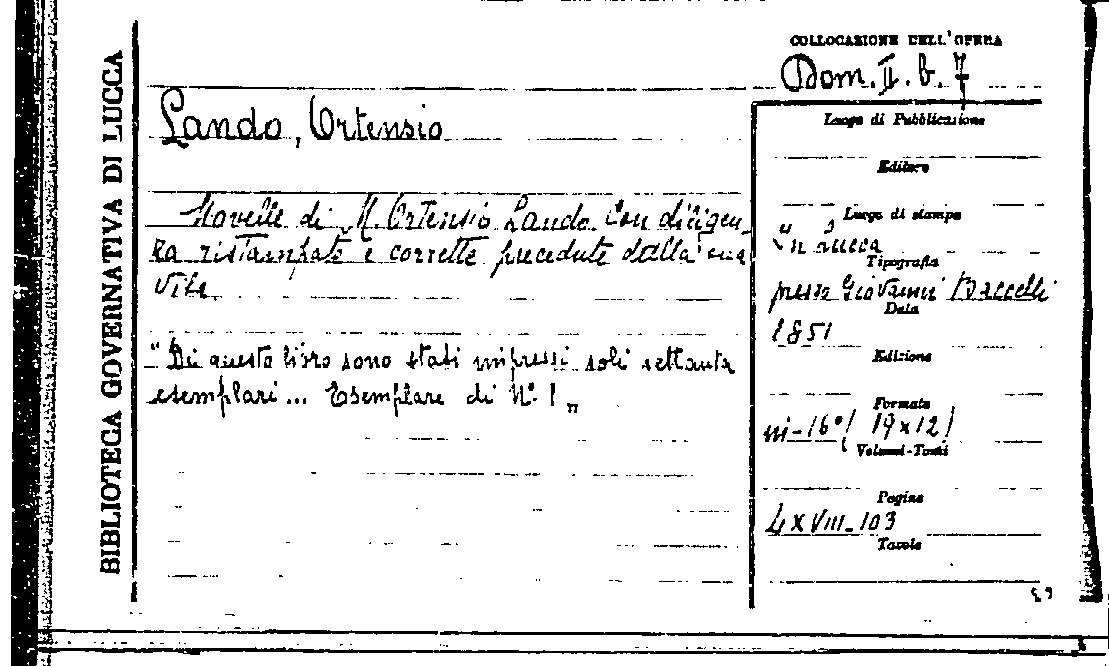 BIBLIOTECA GOVERNATIVA DI LUCCA
COLLOCAZIONE DELL'OPERA
Dom. II. b. 7
Lando, Ortensio
Novelle di M. Ortensio Lando. Con diligen-
za ristampate e corrette precedute dalla sua
vita
"Di questo libro sono stati impressi soli settanta
esemplari... Esemplare di N. 1„
Luogo di Pubblicazione
Editore
Luogo di stampa
in Lucca
Tipografia
presso Giovanni Baccelli
Data
1851
Edizione
Formato
in-16° ( 19x12)
Volumi-Tomi
Pagine
LXVIII-103
Tavole